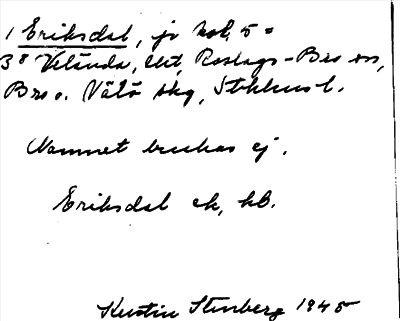 1 Eriksdal, jr nok, 5 =
3⁸ Velånda, Roslags-Bro sn,
Bro o. Vätö skg, Sthlms l.
Namnet brukas ej.
Eriksdal ek, kb.
Kerstin Stenberg 1945